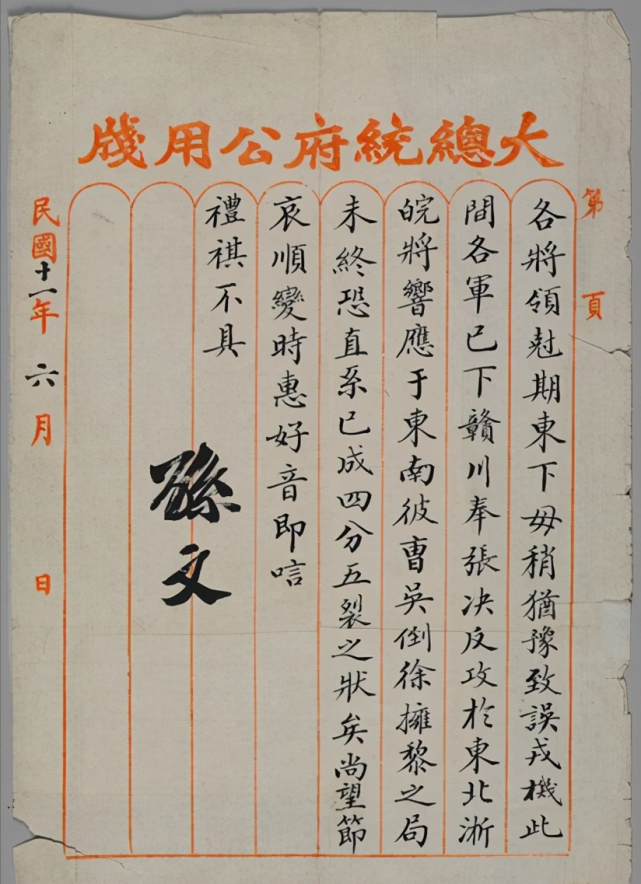 大總統府公用牋
第 頁
各將領尅期東下毋稍猶豫致誤戎機此
間各軍已下贛川奉張決反攻於東北浙
皖將響應于東南彼曹吳倒徐擁黎之局
未終恐直系已成四分五裂之狀矣尚望節
哀順變時惠好音即唁
禮祺不具
孫文
民國十一年六月 日